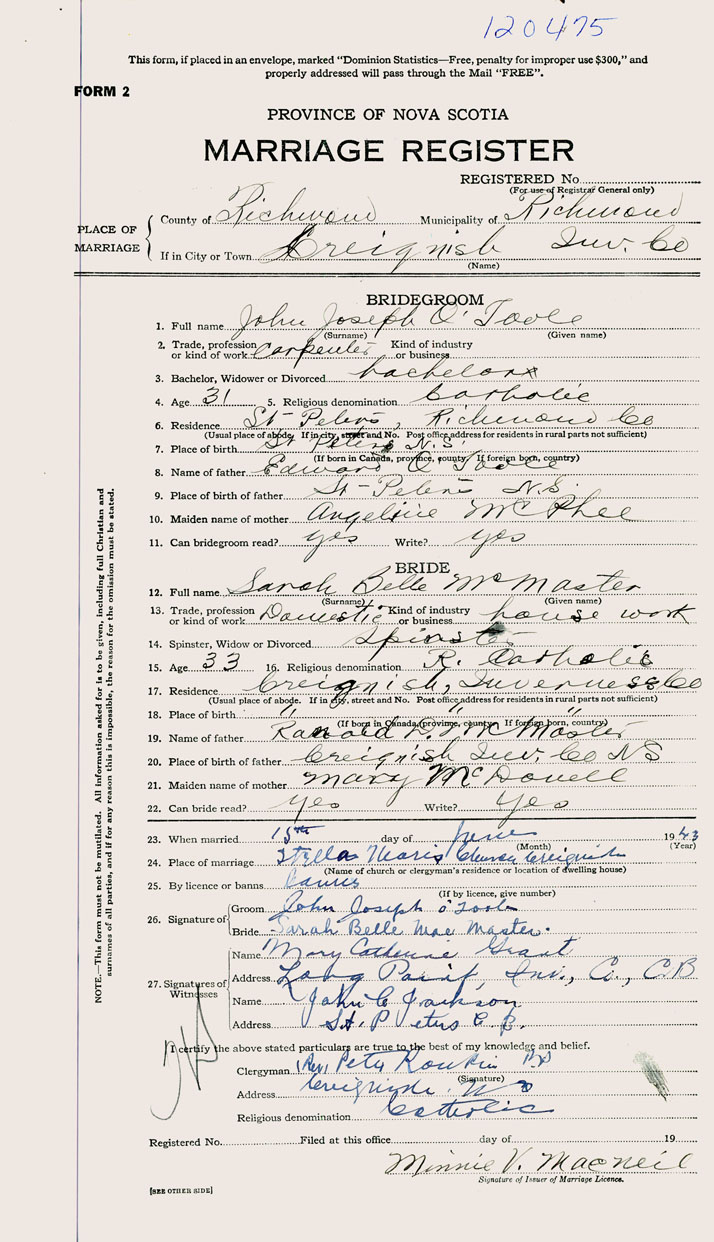 120475
This form, if placed in an envelope, marked "Dominion Statistics—Free, penalty for improper use $300," and
properly addressed will pass through the Mail "FREE".
FORM 2
PROVINCE OF NOVA SCOTIA
MARRIAGE REGISTER
REGISTERED No.
(For use of Registrar General only)
PLACE OF MARRIAGE
County of Richmond Municipality of Richmond
If in City or Town Creignish Inv. Co
(Name)
BRIDEGROOM
1. Full name John Joseph O'Toole
(Surname) (Given name)
2. Trade, profession or kind of work Carpenter Kind of industry or business
3. Bachelor, Widower or Divorced bachelor
4. Age 31 5. Religious denomination Catholic
6. Residence St-Peters, Richmond Co
(Usual place of abode. If in city, street and No. Post office address for residents in rural parts not sufficient)
7. Place of birth St Peters N.S.
(If born in Canada, province, county. If foreign born, country)
8. Name of father Edward O'Toole
9. Place of birth of father St-Peters N.S.
10. Maiden name of mother Angeline McPhee
11. Can bridegroom read? yes Write? yes
BRIDE
12. Full name Sarah Belle McMaster
(Surname) (Given name)
13. Trade, profession or kind of work Domestic Kind of industry or business house work
14. Spinster, Widow or Divorced Spinster
15. Age 33 16. Religious denomination R. Catholic
17. Residence Creignish, Inverness Co
(Usual place of abode. If in city, street and No. Post office address for residents in rural parts not sufficient)
18. Place of birth " " "
(If born in Canada, province, county. If foreign born, country)
19. Name of father Ranald McMaster
20. Place of birth of father Creignish Inv. Co NS
21. Maiden name of mother Mary McDonell
22. Can bride read? yes Write? yes
23. When married 15th day of June 1943
(Month) (Year)
24. Place of marriage Stella Maris Church Creignish
(Name of church or clergyman's residence or location of dwelling house)
25. By licence or banns Banns
(If by licence, give number)
26. Signature of
Groom John Joseph O'Toole
Bride Sarah Belle Mac Master.
27. Signatures of Witnesses
Name Mary Catherine Grant
Address Long Point, Inv., Co., C.B
Name John C Jackson
Address St. Peters C.B.
I certify the above stated particulars are true to the best of my knowledge and belief.
Clergyman (Rev) Peter Rankin P.P.
(Signature)
Address Creignish. N S
Religious denomination Catholic
Registered No. Filed at this office day of 19
Minnie V. MacNeil
Signature of Issuer of Marriage Licence.
[SEE OTHER SIDE]
NOTE.—This form must not be mutilated. All information asked for is to be given, including full Christian and
surnames of all parties, and if for any reason this is impossible, the reason for the omission must be stated.